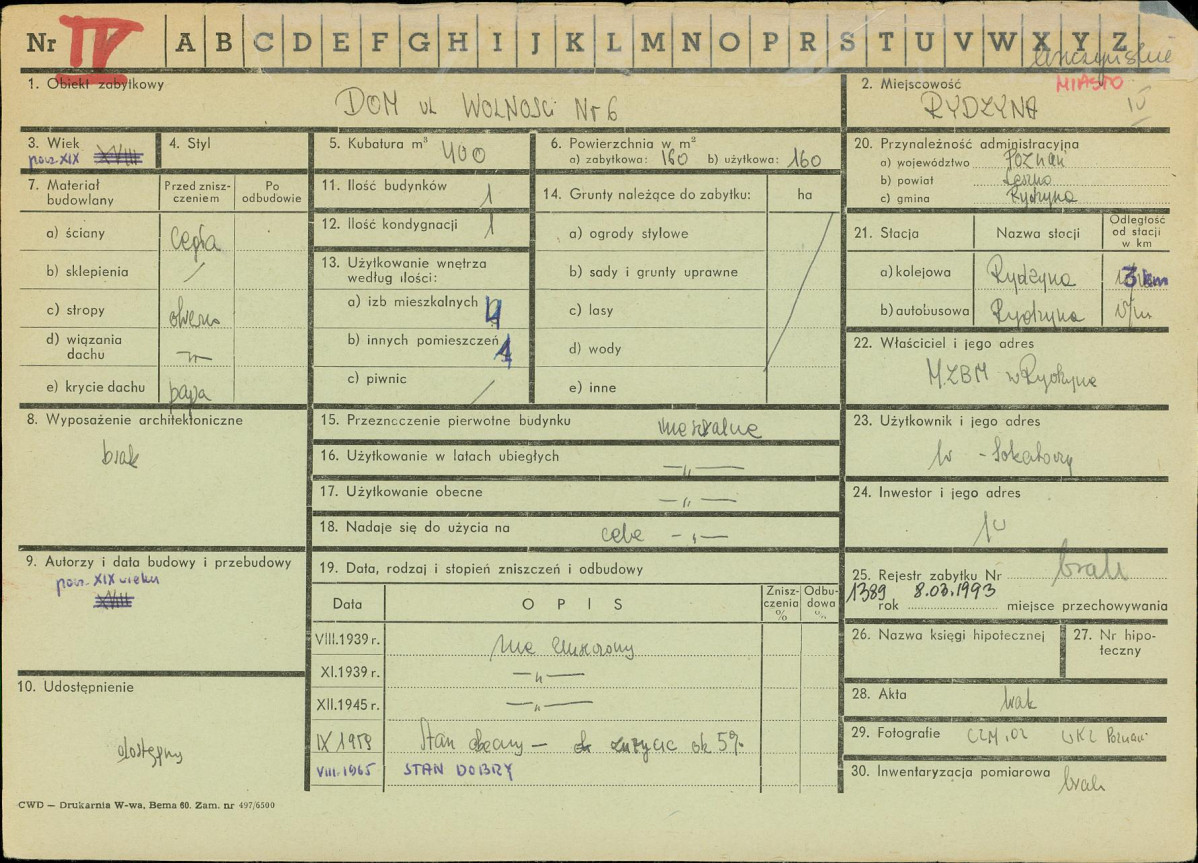 Nr IV A B C D E F G H I J K L M N O P R S T U V W X Y Z
MIASTO
IV
1. Obiekt zabytkowy
DOM ul WOLNOŚCI Nr 6
2. Miejscowość
RYDZYNA
3. Wiek
poł. XIX XVIII
4. Styl
5. Kubatura m³ 400
6. Powierzchnia w m²
a) zabytkowa: 160 b) użytkowa: 160
20. Przynależność administracyjna
a) województwo Poznań
b) powiat Leszno
c) gmina Rydzyna
7. Materiał budowlany
Przed zniszczeniem
Po odbudowie
a) ściany cegła
b) sklepienia /
c) stropy
d) wiązania dachu —„—
e) krycie dachu papa
11. Ilość budynków 1
12. Ilość kondygnacji 1
13. Użytkowanie wnętrza
według ilości:
a) izb mieszkalnych 4
b) innych pomieszczeń 1
c) piwnic /
14. Grunty należące do zabytku: ha
a) ogrody stylowe
b) sady i grunty uprawne
c) lasy
d) wody
e) inne
21. Stacja
Nazwa stacji
Odległość od stacji w km
a) kolejowa Rydzyna 3 km
b) autobusowa Rydzyna
22. Właściciel i jego adres
MZBM w Rydzynie
8. Wyposażenie architektoniczne
brak
15. Przeznaczenie pierwotne budynku mieszkalne
16. Użytkowanie w latach ubiegłych —„—
17. Użytkowanie obecne —„—
18. Nadaje się do użycia na cele —„—
23. Użytkownik i jego adres
24. Inwestor i jego adres
9. Autorzy i data budowy i przebudowy
poł. XIX wieku
XVIII
19. Data, rodzaj i stopień zniszczeń i odbudowy
Data
OPIS
Zniszczenia %
Odbudowa %
VIII.1939 r. nie zniszczony
XI.1939 r. —„—
XII.1945 r. —„—
IX 1959 Stan obecny — zużycie ok 5%
VIII.1965 STAN DOBRY
25. Rejestr zabytku Nr brak
1389 8.03.1993
rok miejsce przechowywania
26. Nazwa księgi hipotecznej
27. Nr hipoteczny
10. Udostępnienie
dostępny
28. Akta brak
29. Fotografie WKZ Poznań
30. Inwentaryzacja pomiarowa
brak
CWD — Drukarnia W-wa, Bema 60. Zam. nr 497/6500